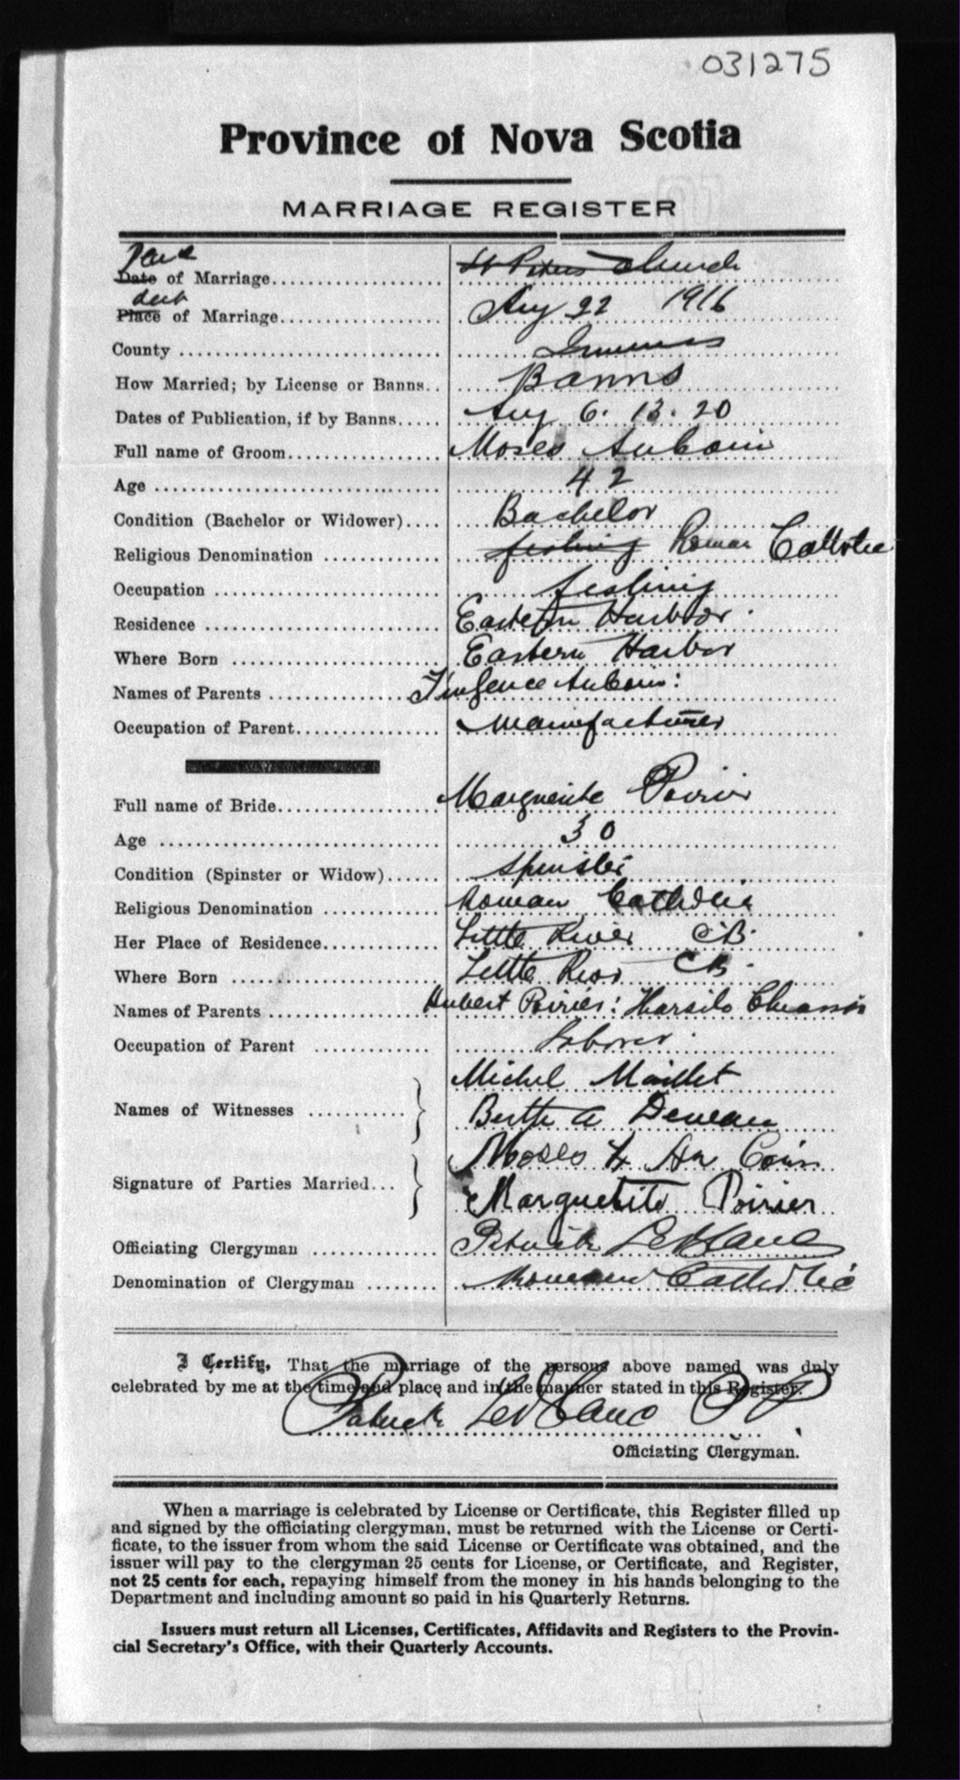 031275
Province of Nova Scotia
MARRIAGE REGISTER
Date of Marriage St Peters Church
Place of Marriage Aug 22 1916
County
How Married; by License or Banns Banns
Dates of Publication, if by Banns Aug 6. 13. 20
Full name of Groom Moses AuCoin
Age 42
Condition (Bachelor or Widower) Bachelor
Religious Denomination fishing Roman Catholic
Occupation fishing
Residence Eastern Harbor
Where Born Eastern Harbor
Names of Parents AuCoin:
Occupation of Parent Manufacturer
Full name of Bride Marguerite Poirier
Age 30
Condition (Spinster or Widow) Spinster
Religious Denomination Roman Catholic
Her Place of Residence Little River CB.
Where Born Little River CB.
Names of Parents Hubert Poirier:
Occupation of Parent Laborer
Michel Maillet
Names of Witnesses
Moses Au Coin
Signature of Parties Married
Marguerite Poirier
Officiating Clergyman Patrick LeBlanc
Denomination of Clergyman Roman Catholic
I Certify, That the marriage of the persons above named was duly
celebrated by me at the time and place and in the manner stated in this Register.
Patrick LeBlanc PP
Officiating Clergyman.
When a marriage is celebrated by License or Certificate, this Register filled up
and signed by the officiating clergyman, must be returned with the License or Certi-
ficate, to the issuer from whom the said License or Certificate was obtained, and the
issuer will pay to the clergyman 25 cents for License, or Certificate, and Register,
not 25 cents for each, repaying himself from the money in his hands belonging to the
Department and including amount so paid in his Quarterly Returns.
Issuers must return all Licenses, Certificates, Affidavits and Registers to the Provin-
cial Secretary's Office, with their Quarterly Accounts.